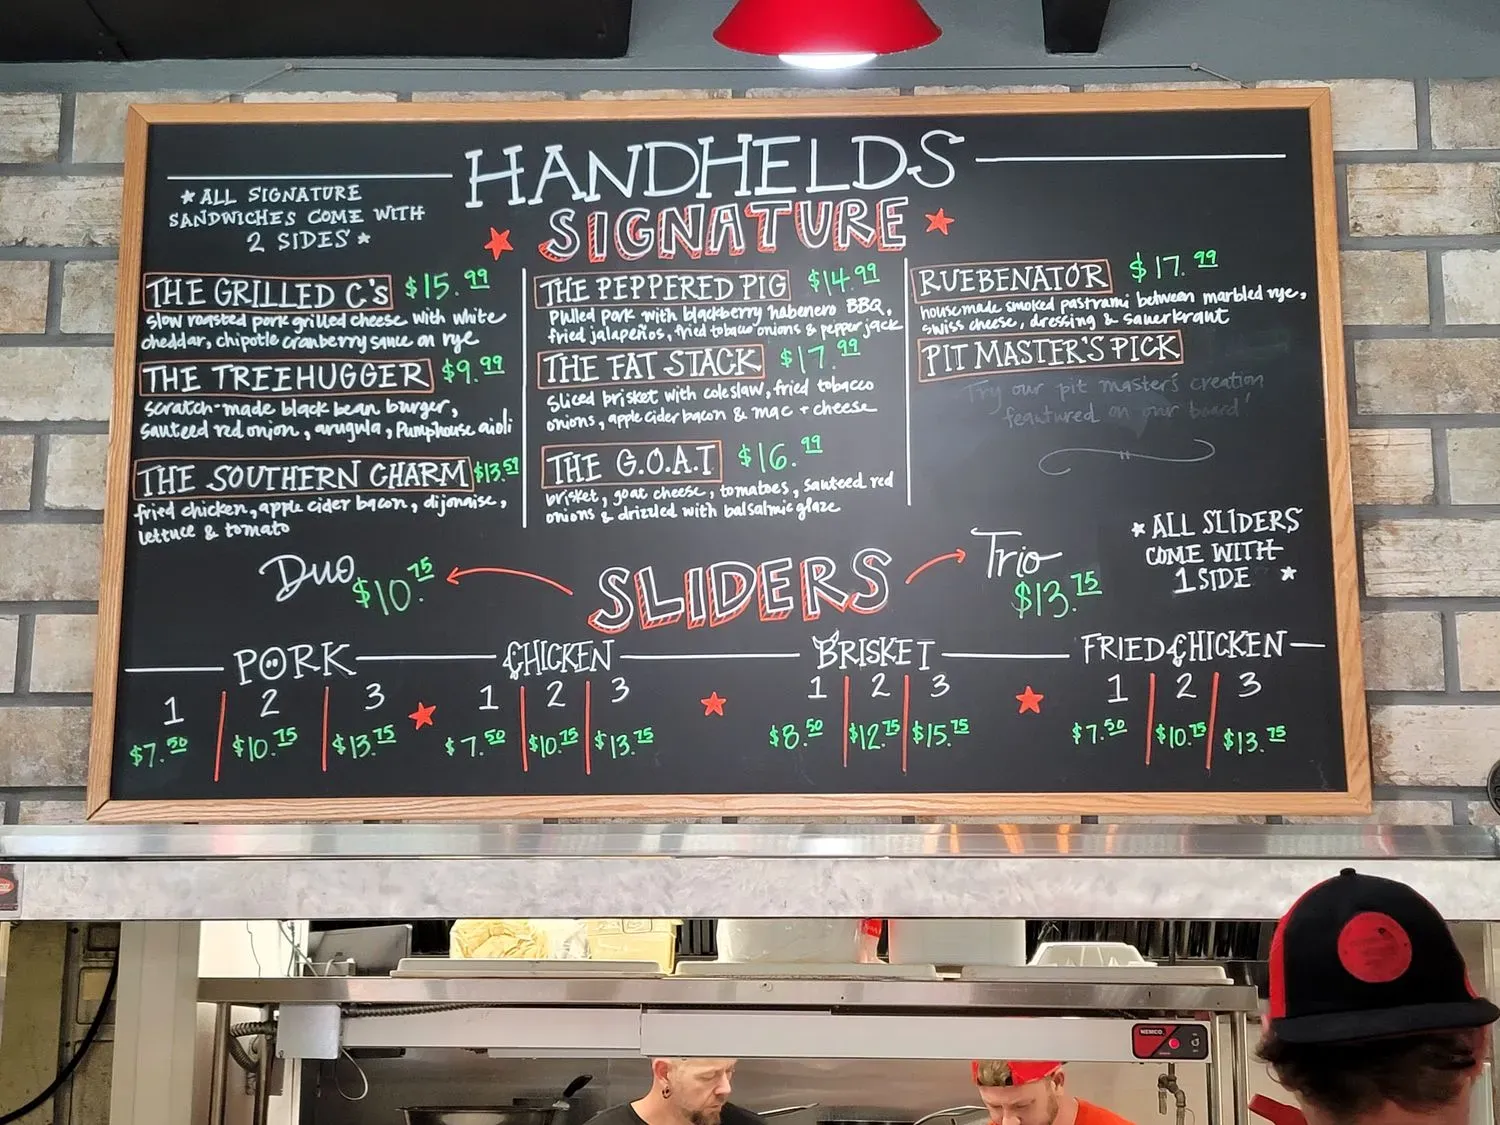 HANDHELDS
SIGNATURE
★ ALL SIGNATURE
SANDWICHES COME WITH
2 SIDES ★
THE GRILLED C'S $15.99
slow roasted pork grilled cheese with white
cheddar, chipotle cranberry sauce on rye
THE TREEHUGGER $9.99
scratch-made black bean burger,
sauteed red onion, arugula, Pumphouse aioli
THE SOUTHERN CHARM $13.59
fried chicken, apple cider bacon, dijonaise,
lettuce & tomato
THE PEPPERED PIG $14.99
Pulled pork with blackberry habenero BBQ,
fried jalapeños, fried tobacco onions & pepper jack
THE FAT STACK $17.99
Sliced brisket with coleslaw, fried tobacco
onions, apple cider bacon & mac + cheese
THE G.O.A.T $16.99
brisket, goat cheese, tomatoes, sauteed red
onions & drizzled with balsalmic glaze
RUEBENATOR $17.99
housemade smoked pastrami between marbled rye,
swiss cheese, dressing & sauerkraut
PIT MASTER'S PICK
Try our pit master's creation
feautured on our board!
SLIDERS
Duo $10.75
Trio $13.75
★ ALL SLIDERS
COME WITH
1 SIDE ★
PORK
1 2 3
$7.50 $10.75 $13.75
CHICKEN
1 2 3
$7.50 $10.75 $13.75
BRISKET
1 2 3
$8.50 $12.75 $15.75
FRIED CHICKEN
1 2 3
$7.50 $10.75 $13.75
NEMCO